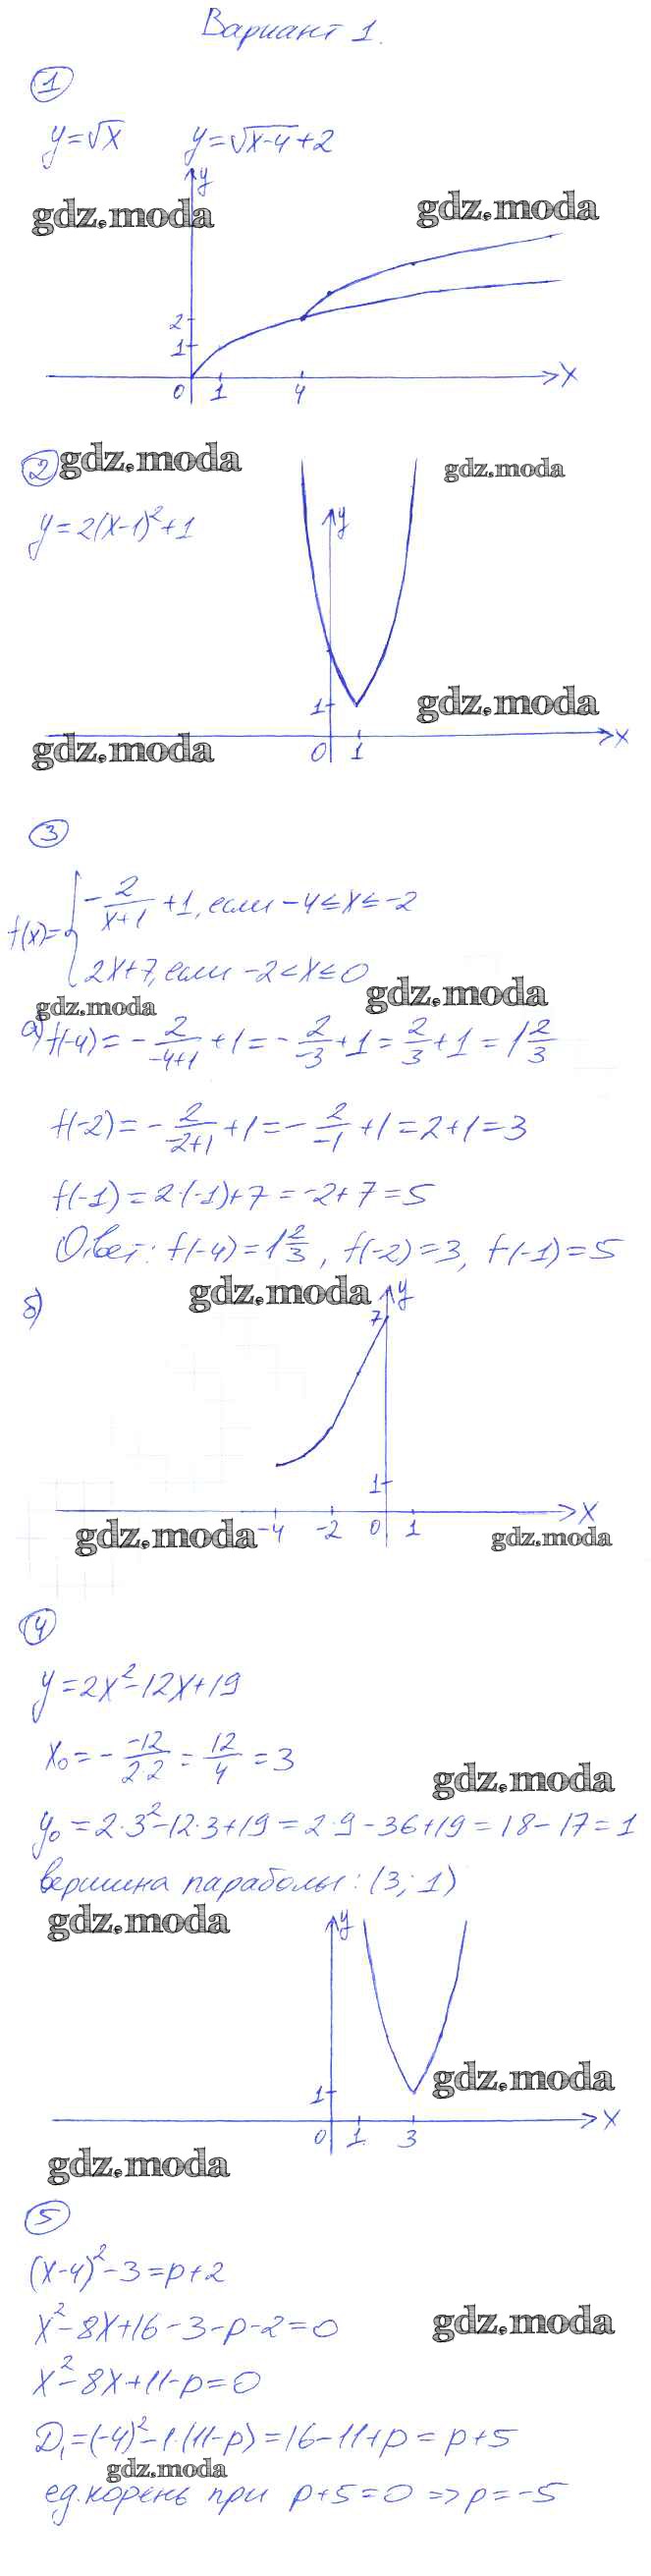 Вариант 1.
1
y=√x y=√x-4+2
gdz.moda gdz.moda
y
2
1
0 1 4 x
2 gdz.moda gdz.moda
y=2(x-1)²+1
y
1 gdz.moda
gdz.moda
0 1 x
3
f(x)= { -2/(x+1) +1, если -4≤x≤-2
2x+7, если -2<x≤0
gdz.moda gdz.moda
а) f(-4) = - 2/(-4+1) +1 = - 2/(-3) +1 = 2/3 +1 = 1 2/3
f(-2) = - 2/(-2+1) +1 = - 2/(-1) +1 = 2+1 = 3
f(-1) = 2·(-1)+7 = -2+7 = 5
Ответ: f(-4) = 1 2/3, f(-2) = 3, f(-1) = 5
б) gdz.moda y
7
1
gdz.moda -4 -2 0 1 x
gdz.moda
4
y = 2x²-12x+19
x₀ = - -12/(2·2) = 12/4 = 3
gdz.moda
y₀ = 2·3²-12·3+19 = 2·9-36+19 = 18-17 = 1
вершина параболы: (3; 1)
gdz.moda y
1 gdz.moda
0 1 3 x
gdz.moda
5
(x-4)²-3=p+2
x²-8x+16-3-p-2=0 gdz.moda
x²-8x+11-p=0
D₁=(-4)²-1·(11-p)=16-11+p = p+5
gdz.moda
ед. корень при p+5=0 => p=-5